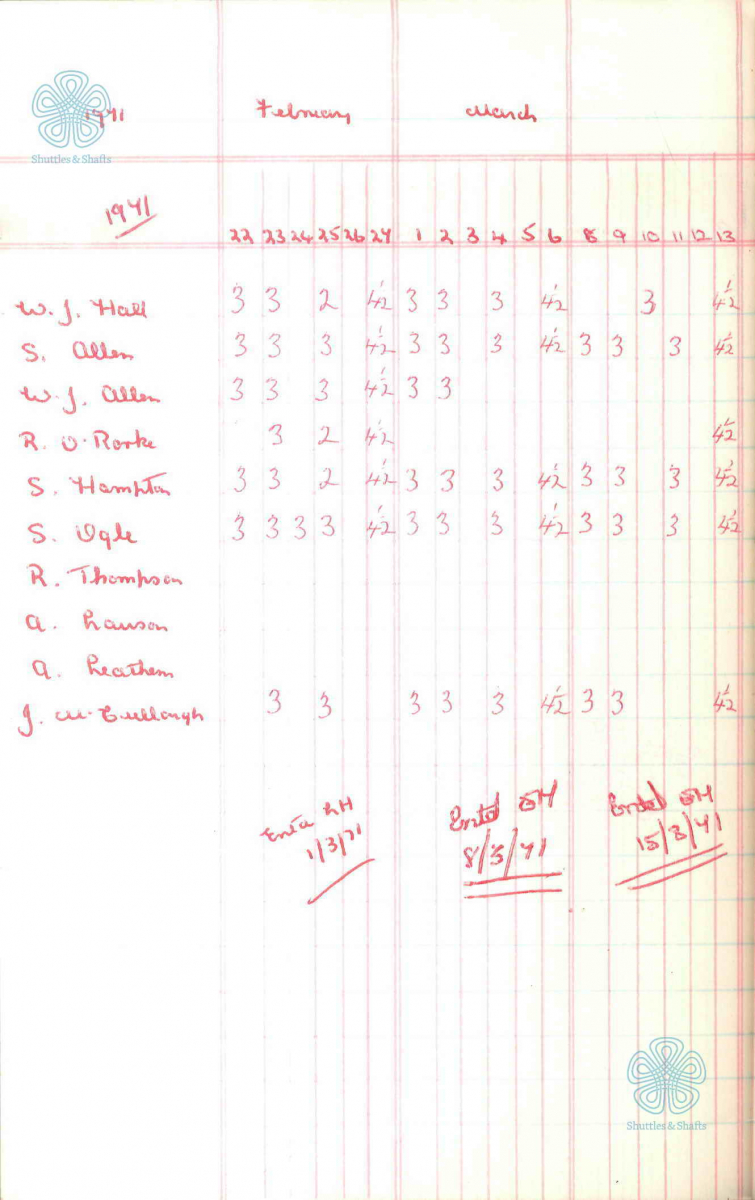 1971 February March
1971 22 23 24 25 26 27 1 2 3 4 5 6 8 9 10 11 12 13
W. J. Hall 3 3 2 4½ 3 3 3 4½ 3 4½
S. Allen 3 3 3 4½ 3 3 3 4½ 3 3 3 4½
W. J. Allen 3 3 3 4½ 3 3
R. O'Rorke 3 2 4½ 4½
S. Hampton 3 3 2 4½ 3 3 3 4½ 3 3 3 4½
S. Ogle 3 3 3 3 4½ 3 3 3 4½ 3 3 3 4½
R. Thompson
A. Lawson
A. Leathem
J. McCullough 3 3 3 3 3 4½ 3 3 4½
1/3/71
Entd 8/3/71
15/3/71
Shuttles & Shafts
Shuttles & Shafts